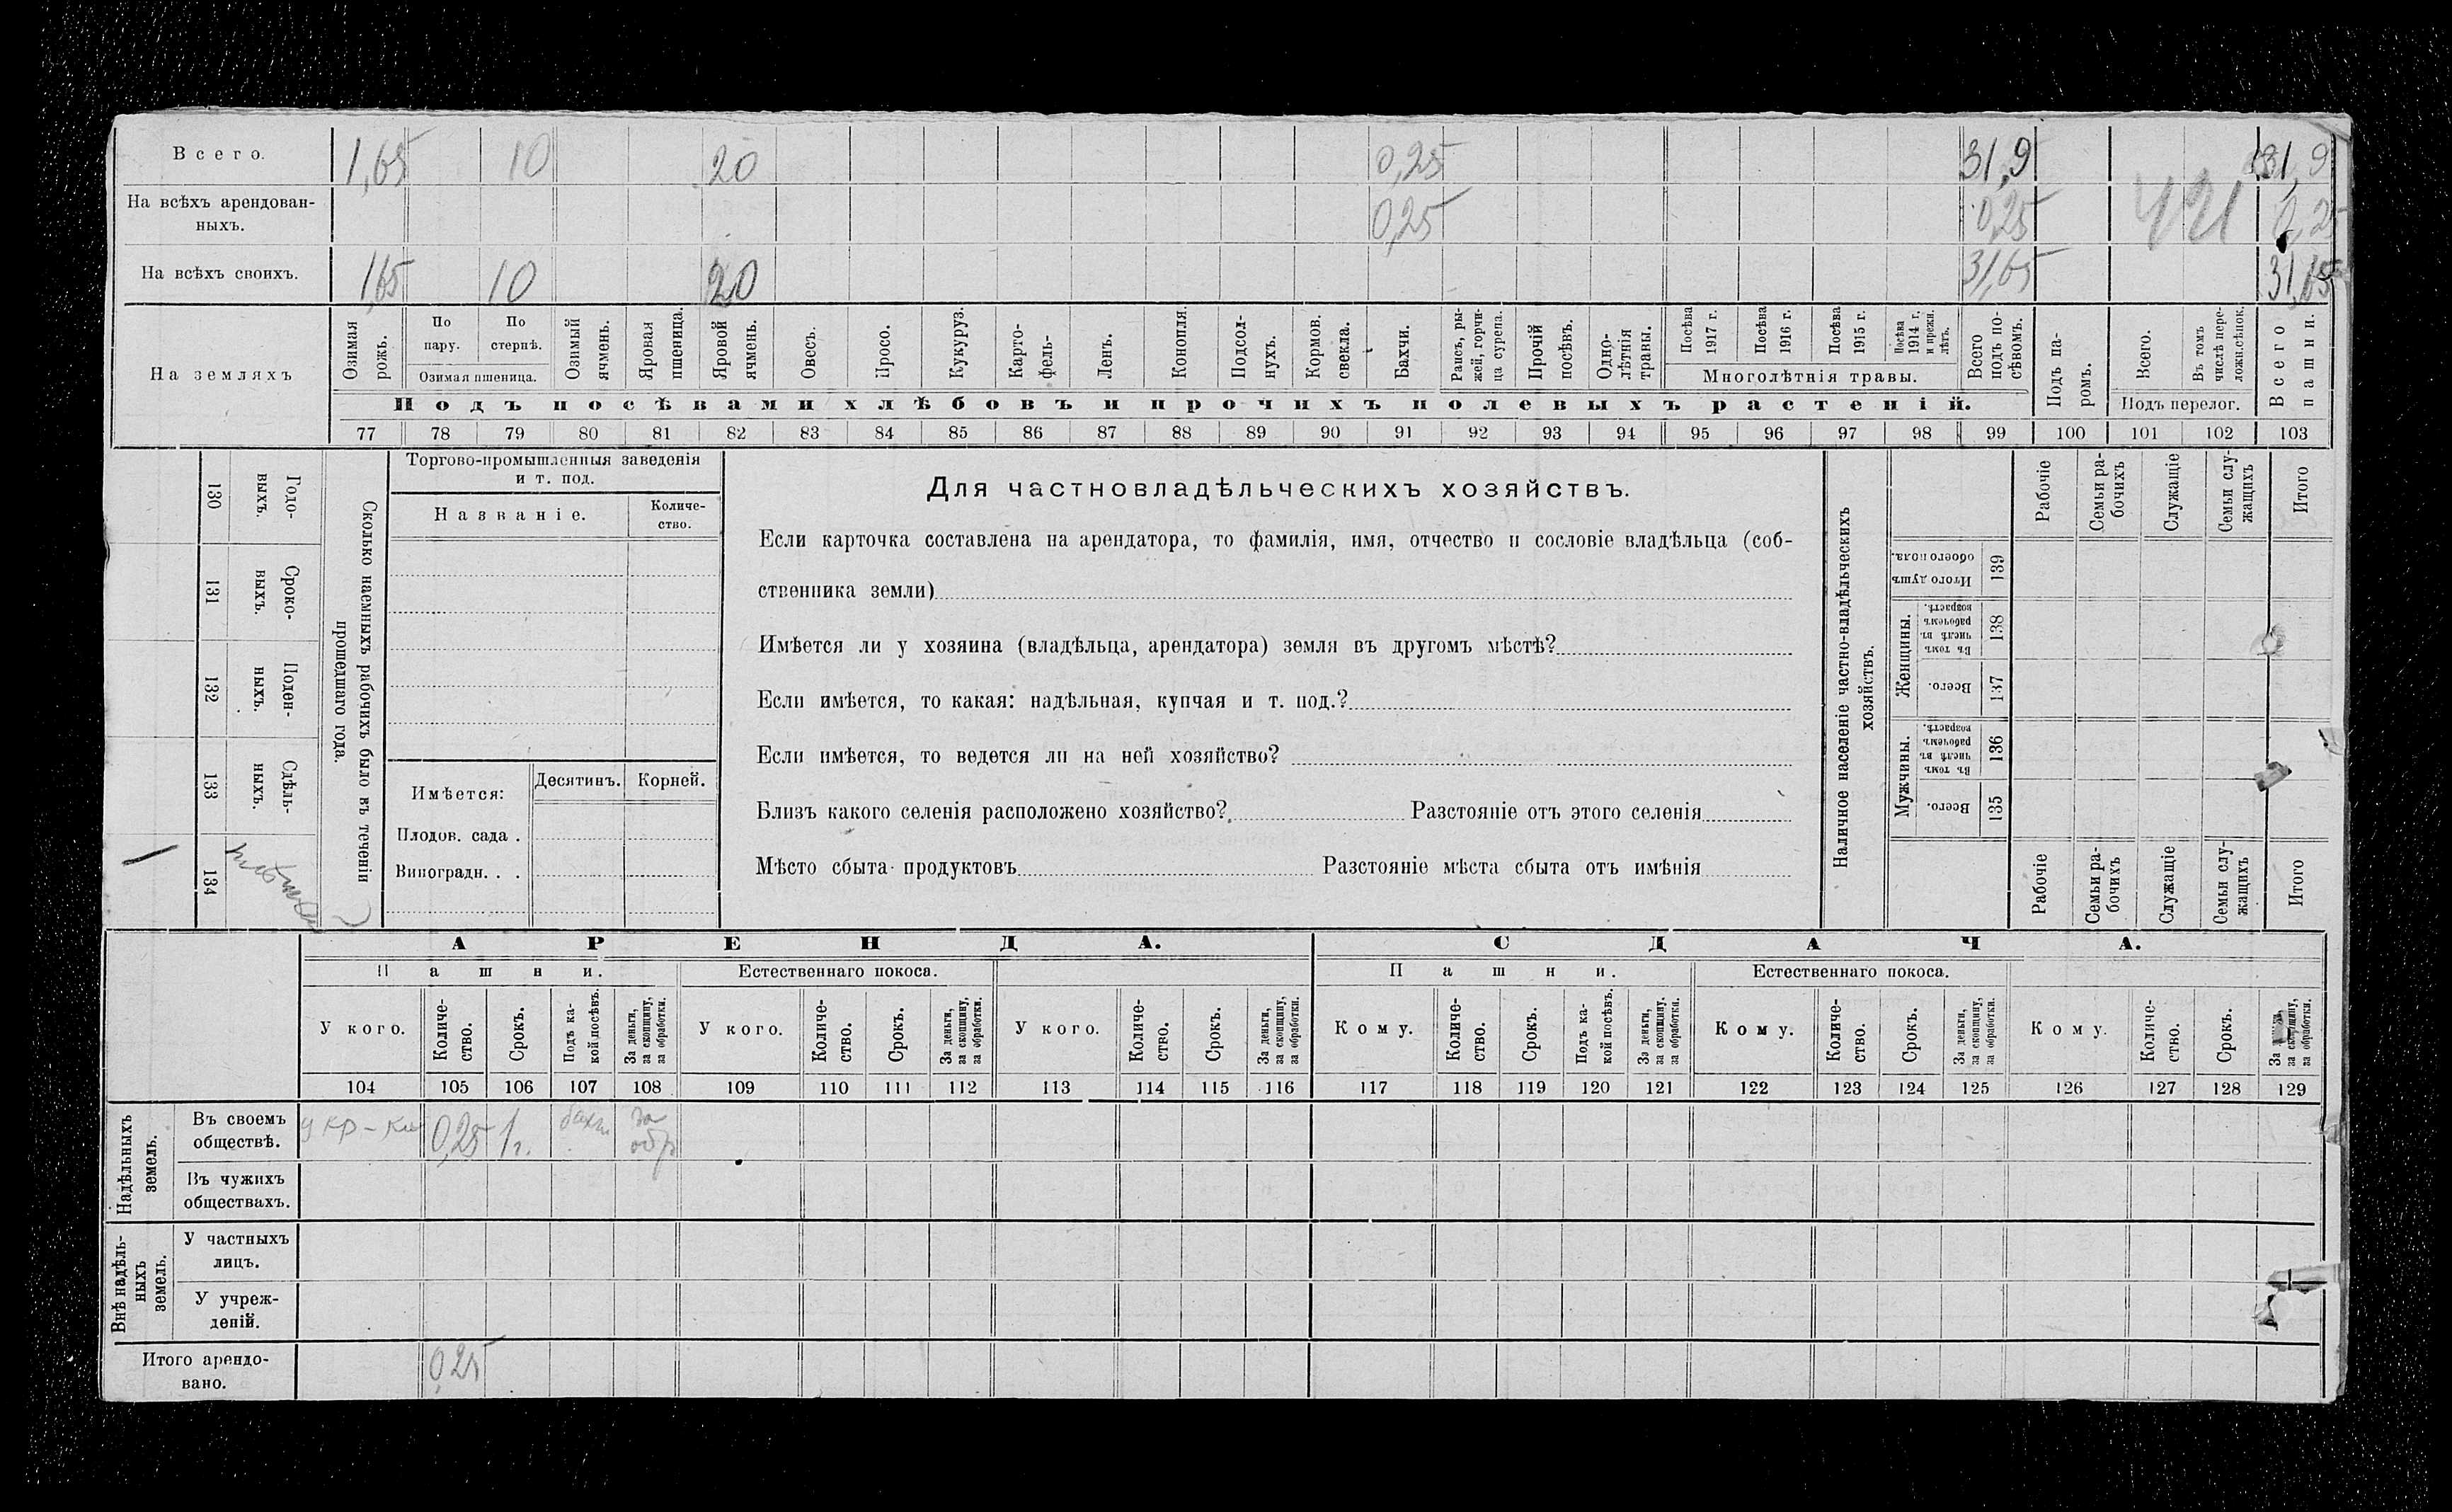 Всего. 1,65 10 20 0,25 31,9 31,9
На всѣхъ арендован-
ныхъ. 0,25 0,25 0,25
На всѣхъ своихъ. 1,65 10 20 31,65 31,65
421
На земляхъ
Озимая
рожь.
По
пару.
По
стернѣ.
Озимая пшеница.
Озимый
ячмень.
Яровая
пшеница.
Яровой
ячмень.
Овесъ.
Просо.
Кукуруз.
Карто-
фель-
Ленъ.
Конопля.
Подсол-
нухъ.
Кормов.
свекла.
Бахчи.
Рапсъ, ры-
жей, горчи-
ца сурепа.
Прочій
посѣвъ.
Одно-
лѣтнія
травы.
Посѣва
1917 г.
Посѣва
1916 г.
Посѣва
1915 г.
Посѣва
1914 г.
и прежн.
лѣтъ.
Многолѣтнія травы.
Всего
подъ по-
сѣвомъ.
Подъ па-
ромъ.
Всего.
Въ томъ
числѣ пере-
ложн.сѣнок.
Подъ перелог.
Всего
пашни.
Подъ посѣвами хлѣбовъ и прочихъ полевыхъ растеній.
77 78 79 80 81 82 83 84 85 86 87 88 89 90 91 92 93 94 95 96 97 98 99 100 101 102 103
Сколько наемныхъ рабочихъ было въ теченіи
прошедшаго года.
Годо-
выхъ.
130
Сроко-
выхъ.
131
Поден-
ныхъ.
132
Сдѣль-
ныхъ.
133
134
Торгово-промышленныя заведенія
и т. под.
Названіе.
Количе-
ство.
Имѣется:
Десятинъ. Корней.
Плодов. сада .
Виноградн. . .
Для частновладѣльческихъ хозяйствъ.
Если карточка составлена на арендатора, то фамилія, имя, отчество и сословіе владѣльца (соб-
ственника земли)
Имѣется ли у хозяина (владѣльца, арендатора) земля въ другомъ мѣстѣ?
Если имѣется, то какая: надѣльная, купчая и т. под.?
Если имѣется, то ведется ли на ней хозяйство?
Близъ какого селенія расположено хозяйство? Разстояніе отъ этого селенія
Мѣсто сбыта продуктовъ Разстояніе мѣста сбыта отъ имѣнія
Наличное населеніе частно-владѣльческихъ
хозяйствъ.
Рабочіе
Семьи ра-
бочихъ
Служащіе
Семьи слу-
жащихъ
Итого
Итого душъ
обоего пола.
139
Женщины.
Въ томъ
числѣ въ
рабочемъ
возрастѣ.
138
Всего.
137
Мужчины.
Въ томъ
числѣ въ
рабочемъ
возрастѣ.
136
Всего.
135
Рабочіе
Семьи ра-
бочихъ
Служащіе
Семьи слу-
жащихъ
Итого
АРЕНДА. СДАЧА.
Пашни. Естественнаго покоса. Пашни. Естественнаго покоса.
У кого.
Количе-
ство.
Срокъ.
Подъ ка-
кой посѣвъ.
За деньги,
за скопщину,
за обработки.
У кого.
Количе-
ство.
Срокъ.
За деньги,
за скопщину,
за обработки.
У кого.
Количе-
ство.
Срокъ.
За деньги,
за скопщину,
за обработки.
Кому.
Количе-
ство.
Срокъ.
Подъ ка-
кой посѣвъ.
За деньги,
за скопщину,
за обработки.
Кому.
Количе-
ство.
Срокъ.
За деньги,
за скопщину,
за обработки.
Кому.
Количе-
ство.
Срокъ.
За
за скопщину,
за обработки.
104 105 106 107 108 109 110 111 112 113 114 115 116 117 118 119 120 121 122 123 124 125 126 127 128 129
Надѣльныхъ
земель.
Въ своемъ
обществѣ.
у кр-ки 0,25 1 г. бахч за
обр
Въ чужихъ
обществахъ.
Внѣ надѣль-
ныхъ
земель.
У частныхъ
лицъ.
У учреж-
деній.
Итого арендо-
вано. 0,25